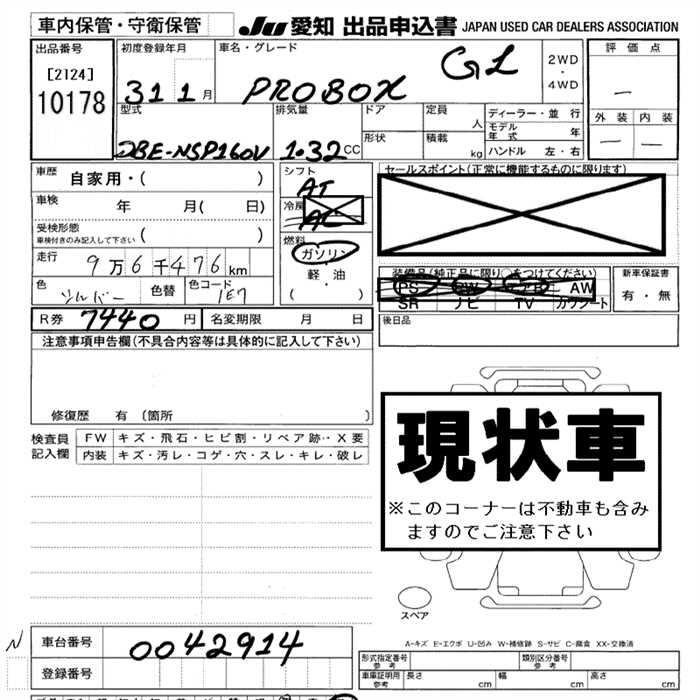 車内保管・守衛保管
JU 愛知 出品申込書 JAPAN USED CAR DEALERS ASSOCIATION
出品番号
[2124]
10178
初度登録年月
31 1 月
車名・グレード
PROBOX GL
2WD
・
4WD
評価点
―
外装 内装
― ―
型式
DBE-NSP160V
排気量
1.32 CC
ドア
形状
定員
人
積載
kg
ディーラー・並行
モデル年式 年
ハンドル 左・右
車歴 自家用・( )
車検 年 月( 日)
受検形態
車検付きのみ記入して下さい ( )
走行 9万6千476km
色 シルバー 色替 色コード 1E7
シフト
AT
冷房
AC
燃料
ガソリン
軽・油
( ・ )
セールスポイント(正常に機能するものに限ります)
装備品(純正品に限り○をつけてください)
PS PW エアB AW
SR ナビ TV カワシート
新車保証書
有・無
後日品
R券 7440 円 名変期限 月 日
注意事項申告欄(不具合内容等は具体的に記入して下さい)
修復歴 有(箇所 )
検査員
記入欄
FW キズ・飛石・ヒビ割・リペア跡・X要
内装 キズ・汚レ・コゲ・穴・スレ・キレ・破レ
現状車
※このコーナーは不動車も含み
ますのでご注意下さい
スペア
A-キズ E-エクボ U-凹み W-補修跡 S-サビ C-腐食 XX-交換済
N
車台番号 0042914
登録番号
形式指定番号
参考
類別区分番号
参考
車庫証明用
参考
長さ cm 幅 cm 高さ cm